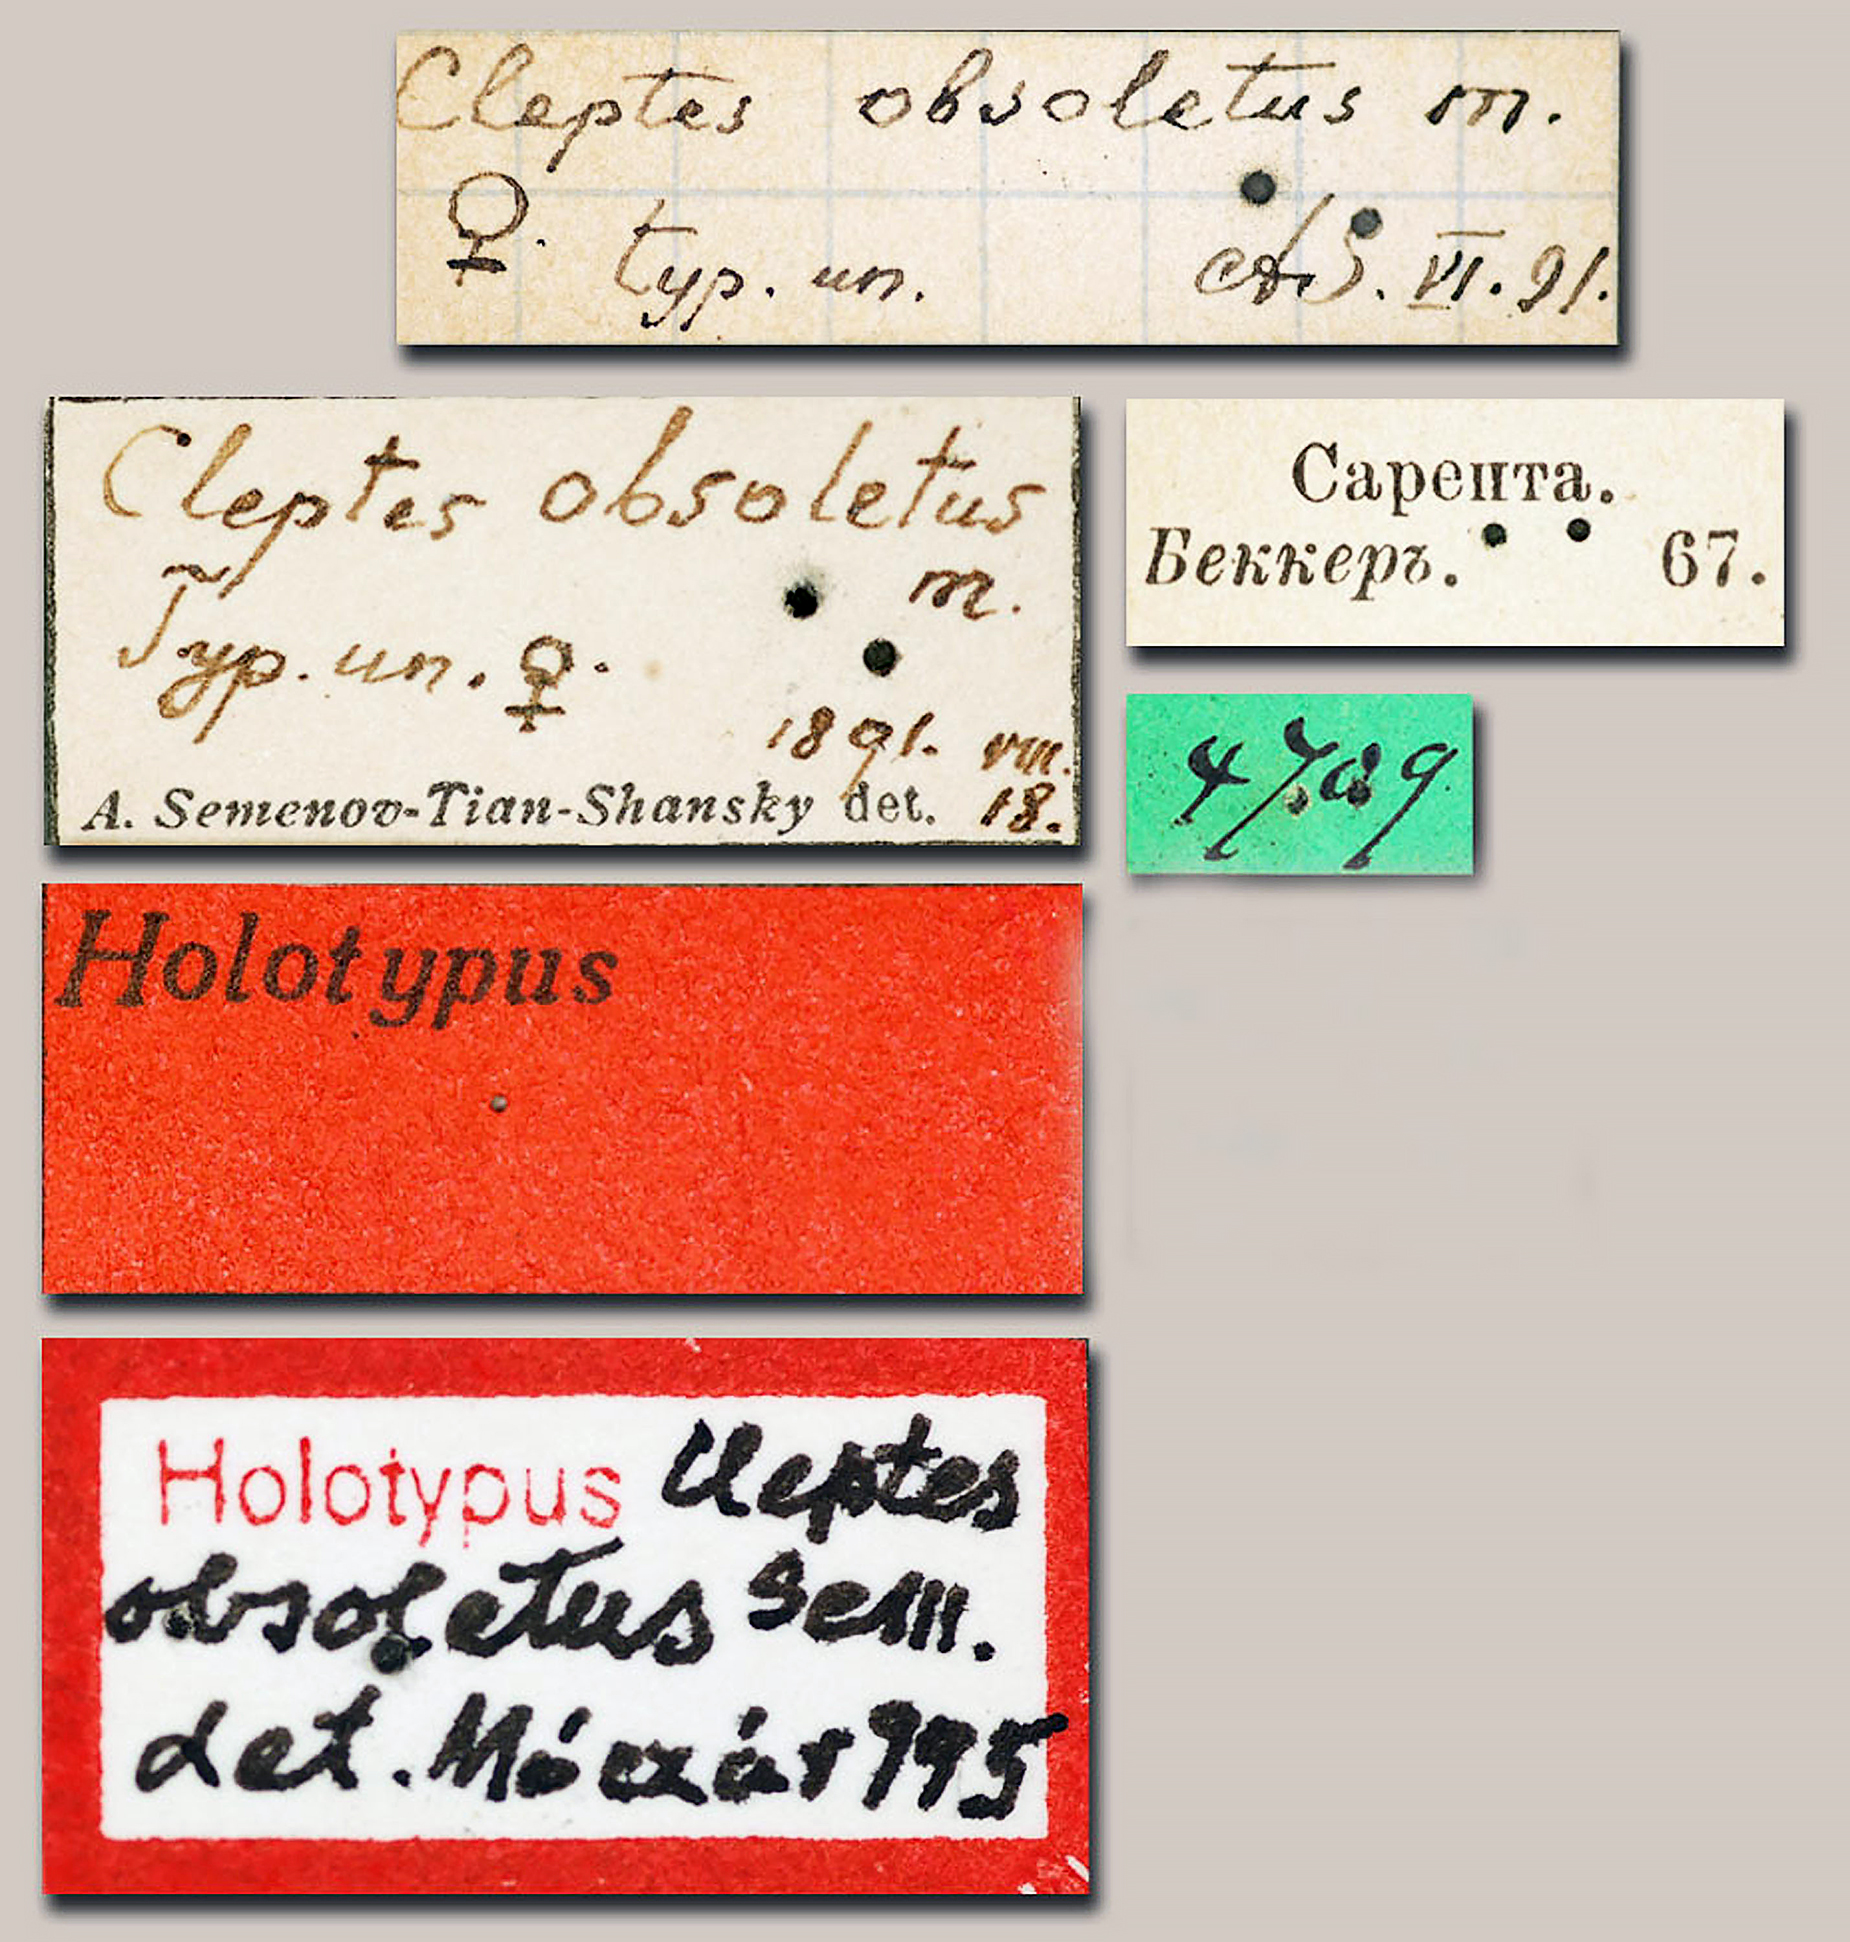 Cleptes obsoletus m.
♀. typ. un. AS. VI. 91.
Cleptes obsoletus
m.
Typ. un. ♀.
1891. VIII.
A. Semenov-Tian-Shansky det. 18.
Сарепта.
Беккеръ. 67.
Holotypus
Holotypus Cleptes
obsoletus Sem.
det. Móczár 995